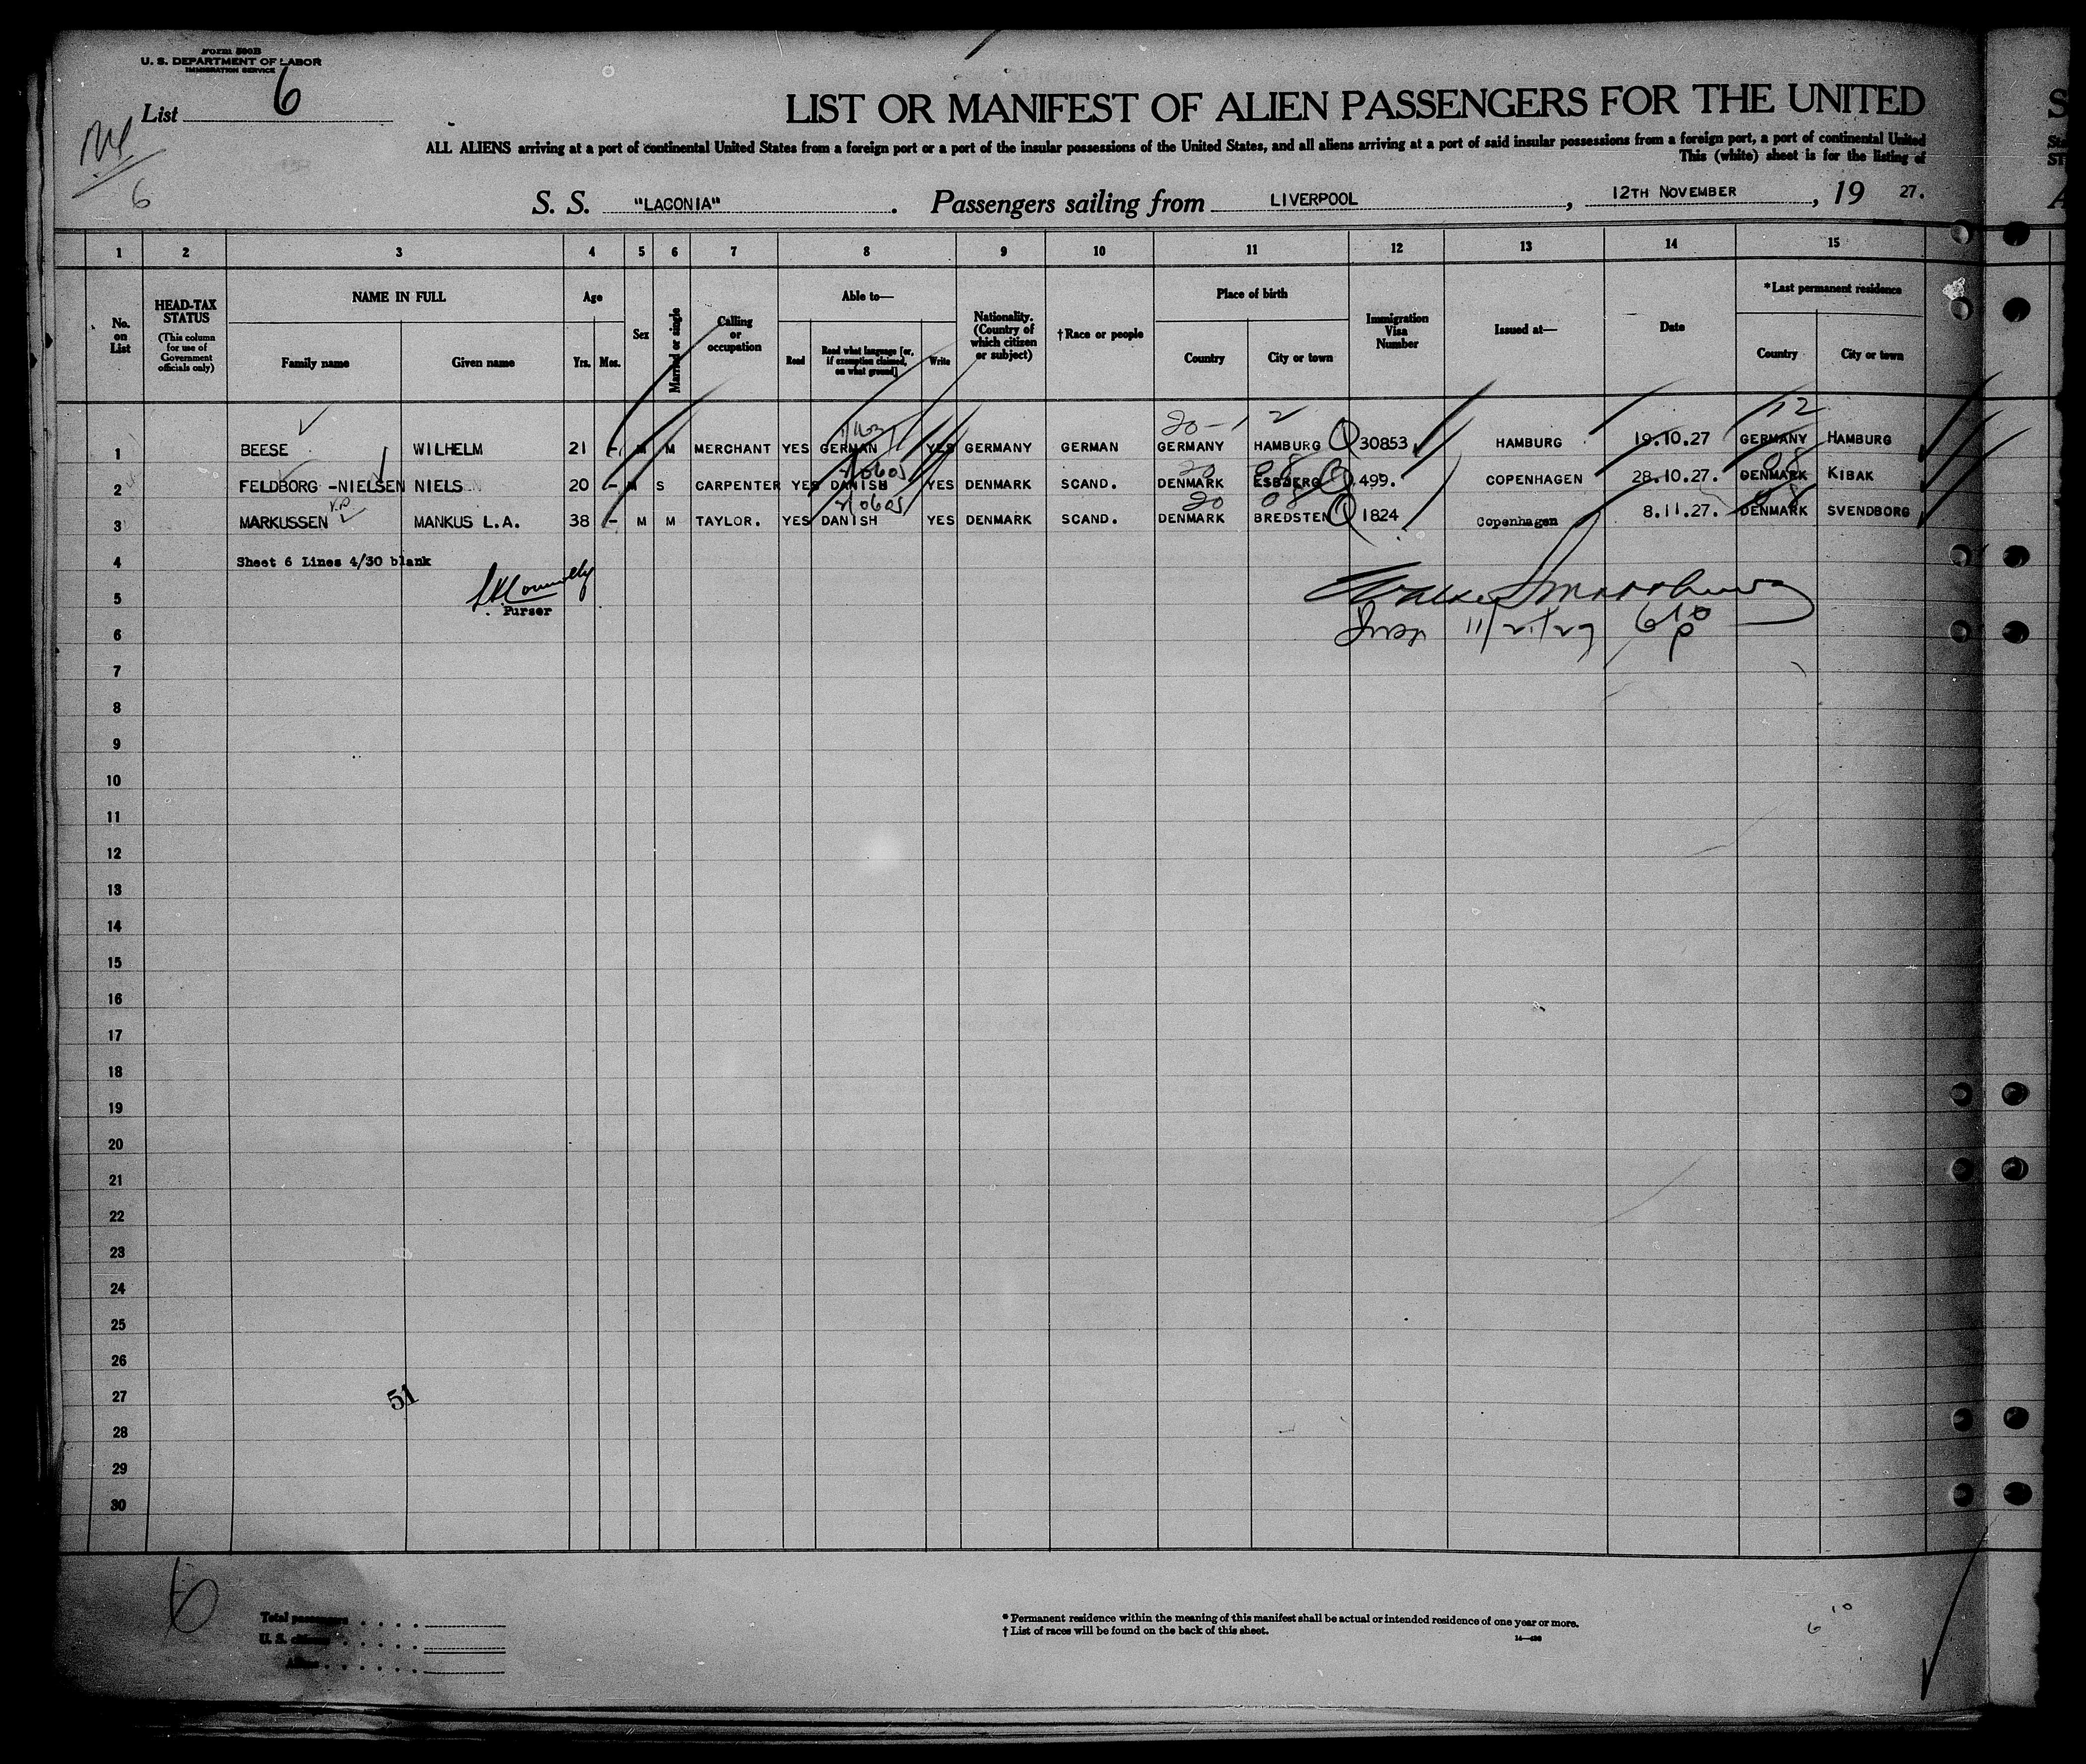 Form 500B
U. S. DEPARTMENT OF LABOR
IMMIGRATION SERVICE
List 6
6
LIST OR MANIFEST OF ALIEN PASSENGERS FOR THE UNITED
ALL ALIENS arriving at a port of continental United States from a foreign port or a port of the insular possessions of the United States, and all aliens arriving at a port of said insular possessions from a foreign port, a port of continental United
This (white) sheet is for the listing of
S. S. "LACONIA". Passengers sailing from LIVERPOOL, 12TH NOVEMBER, 19 27.
1 2 3 4 5 6 7 8 9 10 11 12 13 14 15
No. on List
HEAD-TAX STATUS
(This column for use of Government officials only)
NAME IN FULL
Family name Given name
Age
Yrs. Mos.
Sex
Married or single
Calling or occupation
Able to—
Read Read what language [or, if exemption claimed, on what ground] Write
Nationality. (Country of which citizen or subject)
†Race or people
Place of birth
Country City or town
Immigration Visa Number
Issued at—
Date
*Last permanent residence
Country City or town
20-1 2 12
1 BEESE WILHELM 21 - M M MERCHANT YES GERMAN YES GERMANY GERMAN GERMANY HAMBURG 30853 HAMBURG 19.10.27 GERMANY HAMBURG
20 08 08
2 FELDBORG -NIELSEN NIELS 20 - M S CARPENTER YES DANISH YES DENMARK SCAND. DENMARK ESBJERG 499. COPENHAGEN 28.10.27. DENMARK KIBAK
20 08 08
3 MARKUSSEN MANKUS L.A. 38 - M M TAYLOR. YES DANISH YES DENMARK SCAND. DENMARK BREDSTEN 1824 Copenhagen 8.11.27. DENMARK SVENDBORG
4 Sheet 6 Lines 4/30 blank
5
Purser
6 11/21/27
7
8
9
10
11
12
13
14
15
16
17
18
19
20
21
22
23
24
25
26
27
51
28
29
30
6
Total passengers
U. S. citizens
Aliens
* Permanent residence within the meaning of this manifest shall be actual or intended residence of one year or more.
† List of races will be found on the back of this sheet.